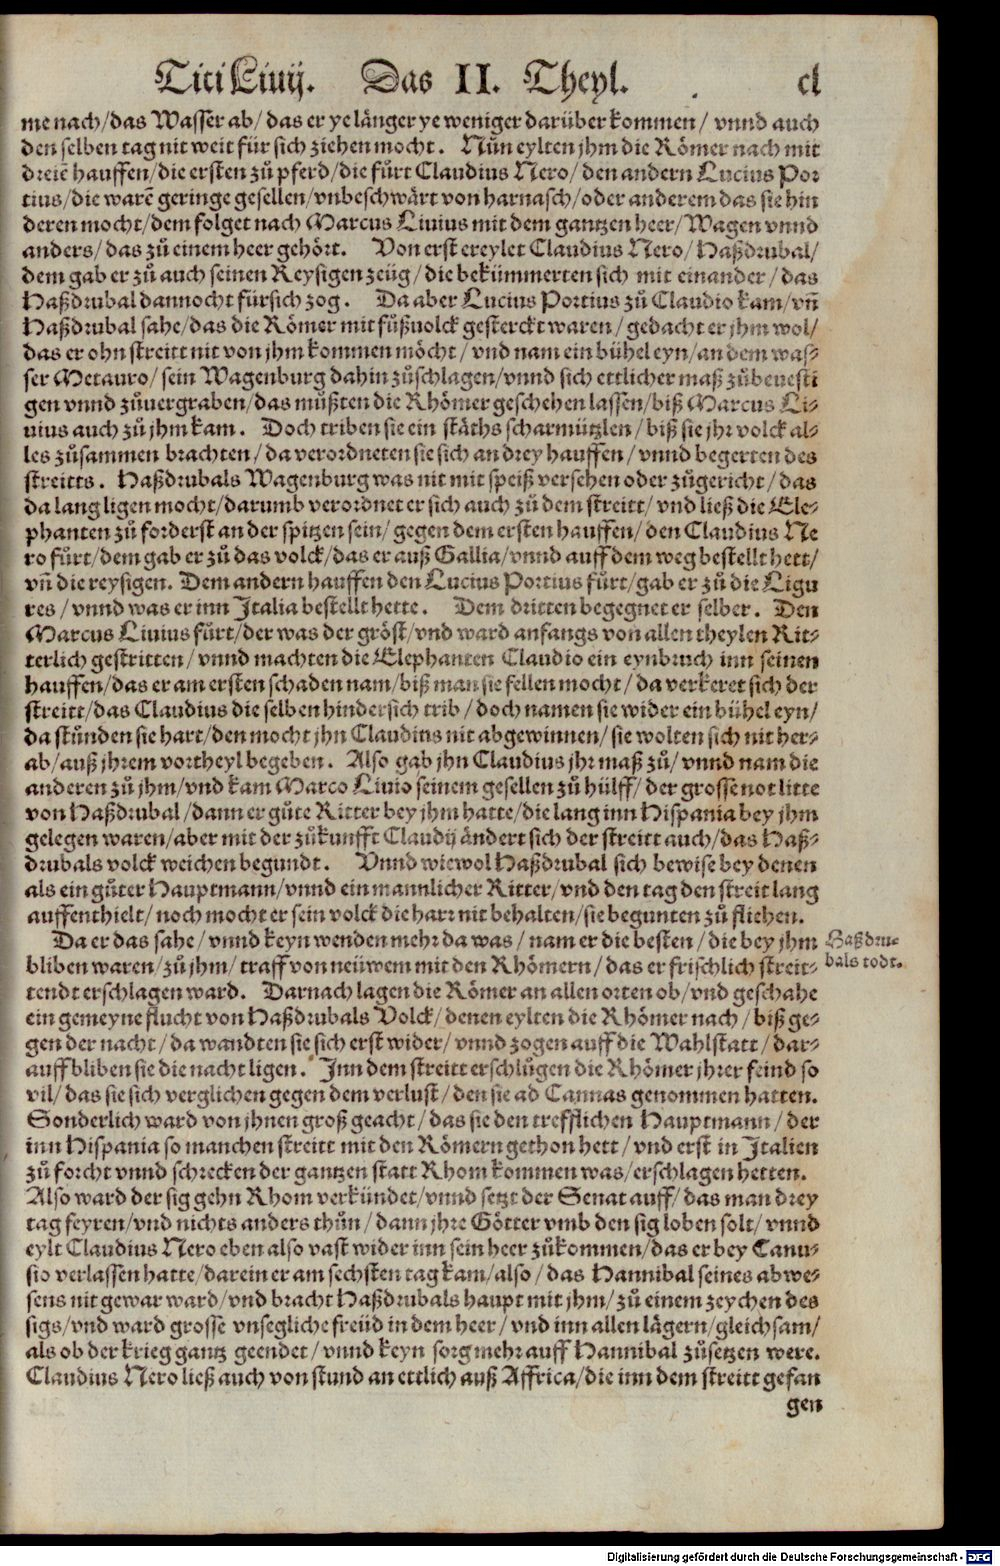 Titi Liuij. Das II. Theyl. cl
me nach/das Wasser ab/ das er ye länger ye weniger darüber kommen / vnnd auch
den selben tag nit weit für sich ziehen mocht. Nůn eylten jhm die Römer nach mit
dreiẽ hauffen/die ersten zů pferd/die fůrt Claudius Nero/den andern Lucius Por
tius/die warẽ geringe gesellen/vnbeschwärt von harnasch/oder anderem das sie hin
deren mocht/dem folget nach Marcus Liuius mit dem gantzen heer/Wagen vnnd
anders/das zů einem heer gehört. Von erst ereylet Claudius Nero/Haßdrubal/
dem gab er zů auch seinen Reysigen zeüg/die bekümmerten sich mit einander/das
Haßdrubal dannocht fürsich zog. Da aber Lucius Portius zů Claudio kam/vñ
Haßdrubal sahe/das die Römer mit fůßuolck gesterckt waren/gedacht er jhm wol/
das er ohn streitt nit von jhm kommen möcht/vnd nam ein bühel eyn/an dem was⸗
ser Metauro/sein Wagenburg dahin zůschlagen/vnnd sich ettlicher maß zůbeuesti
gen vnnd zůuergraben/das můßten die Rhömer geschehen lassen/biß Marcus Li⸗
uius auch zů jhm kam. Doch triben sie ein stäths scharmützlen/biß sie jhr volck al⸗
les zůsammen brachten/da verordneten sie sich an drey hauffen/vnnd begerten des
streitts. Haßdrubals Wagenburg was nit mit speiß versehen oder zůgericht/das
da lang ligen mocht/darumb verordnet er sich auch zů dem streitt/vnd ließ die Ele⸗
phanten zů forderst an der spitzen sein/gegen dem ersten hauffen/den Claudius Ne
ro fůrt/dem gab er zů das volck/das er auß Gallia/vnnd auff dem weg bestellt hett/
vñ die reysigen. Dem andern hauffen den Lucius Portius fůrt/gab er zů die Ligu
res/vnnd was er inn Italia bestellt hette. Dem dritten begegnet er selber. Den
Marcus Liuius fůrt/der was der gröst/vnd ward anfangs von allen theylen Rit⸗
terlich gestritten/vnnd machten die Elephanten Claudio ein eynbruch inn seinen
hauffen/das er am ersten schaden nam/biß man sie fellen mocht/da verkeret sich der
streitt/das Claudius die selben hindersich trib/doch namen sie wider ein bühel eyn/
da stůnden sie hart/den mocht jhn Claudius nit abgewinnen/sie wolten sich nit her⸗
ab/auß jhrem vortheyl begeben. Also gab jhn Claudius jhr maß zů/vnnd nam die
anderen zů jhm/vnd kam Marco Liuio seinem gesellen zů hülff/der grosse not litte
von Haßdrubal/dann er gůte Ritter bey jhm hatte/die lang inn Hispania bey jhm
gelegen waren/aber mit der zůkunfft Claudij ändert sich der streitt auch/das Haß⸗
drubals volck weichen begundt. Vnnd wiewol Haßdrubal sich bewise bey denen
als ein gůter Hauptmann/vnnd ein mannlicher Ritter/vnd den tag den streit lang
auffenthielt/noch mocht er sein volck die harr nit behalten/sie begunten zů fliehen.
Da er das sahe/vnnd keyn wenden mehr da was/nam er die besten/die bey jhm
bliben waren/zů jhm/traff von neüwem mit den Rhömern/das er frischlich streit⸗
tendt erschlagen ward. Darnach lagen die Römer an allen orten ob/vnd geschahe
ein gemeyne flucht von Haßdrubals Volck/denen eylten die Rhömer nach/biß ge⸗
gen der nacht/da wandten sie sich erst wider/vnnd zogen auff die Wahlstatt/dar⸗
auff bliben sie die nacht ligen. Inn dem streitt erschlůgen die Rhömer jhrer feind so
vil/das sie sich verglichen gegen dem verlust/den sie ad Cannas genommen hatten.
Sonderlich ward von jhnen groß geacht/das sie den trefflichen Hauptmann/der
inn Hispania so manchen streitt mit den Römern gethon hett/vnd erst in Italien
zů forcht vnnd schrecken der gantzen statt Rhom kommen was/erschlagen hetten.
Also ward der sig gehn Rhom verkündet/vnnd setzt der Senat auff/das man drey
tag feyren/vnd nichts anders thůn/dann jhre Götter vmb den sig loben solt/vnnd
eylt Claudius Nero eben also vast wider inn sein heer zůkommen/das er bey Canu⸗
sio verlassen hatte/darein er am sechsten tag kam/also/das Hannibal seines abwe⸗
sens nit gewar ward/vnd bracht Haßdrubals haupt mit jhm/zů einem zeychen des
sigs/vnd ward grosse vnsegliche freüd in dem heer/vnd inn allen lägern/gleichsam/
als ob der krieg gantz geendet/vnnd keyn sorg mehr auff Hannibal zůsetzen were.
Claudius Nero ließ auch von stund an ettlich auß Affrica/die inn dem streitt gefan
gen
Haßdru⸗
bals todt.
Digitalisierung gefördert durch die Deutsche Forschungsgemeinschaft - DFG